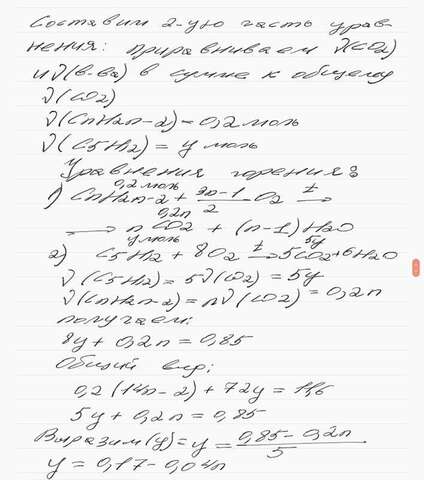 Составим 2-ую часть урав-
нения: приравниваем ν(CO2)
и ν(в-ва) в сумме к общему
ν(CO2)
ν(CnH2n-2) - 0,2 моль
ν(C5H2) = y моль
Уравнения горения:
0,2 моль
1) CnH2n-2 + 3n-1/2 O2 t→
0,2n
→ n CO2 + (n-1) H2O
y моль 5y
2) C5H2 + 8O2 t→ 5CO2+6H2O
ν(C5H2) = 5ν(CO2) = 5y
ν(CnH2n-2) = nν(CO2) = 0,2n
получаем:
8y + 0,2n = 0,85
Общий вид:
0,2(14n-2) + 72y = 11,6
5y + 0,2n = 0,85
Выразим (y) = y = 0,85-0,2n/5
y = 0,17-0,04n